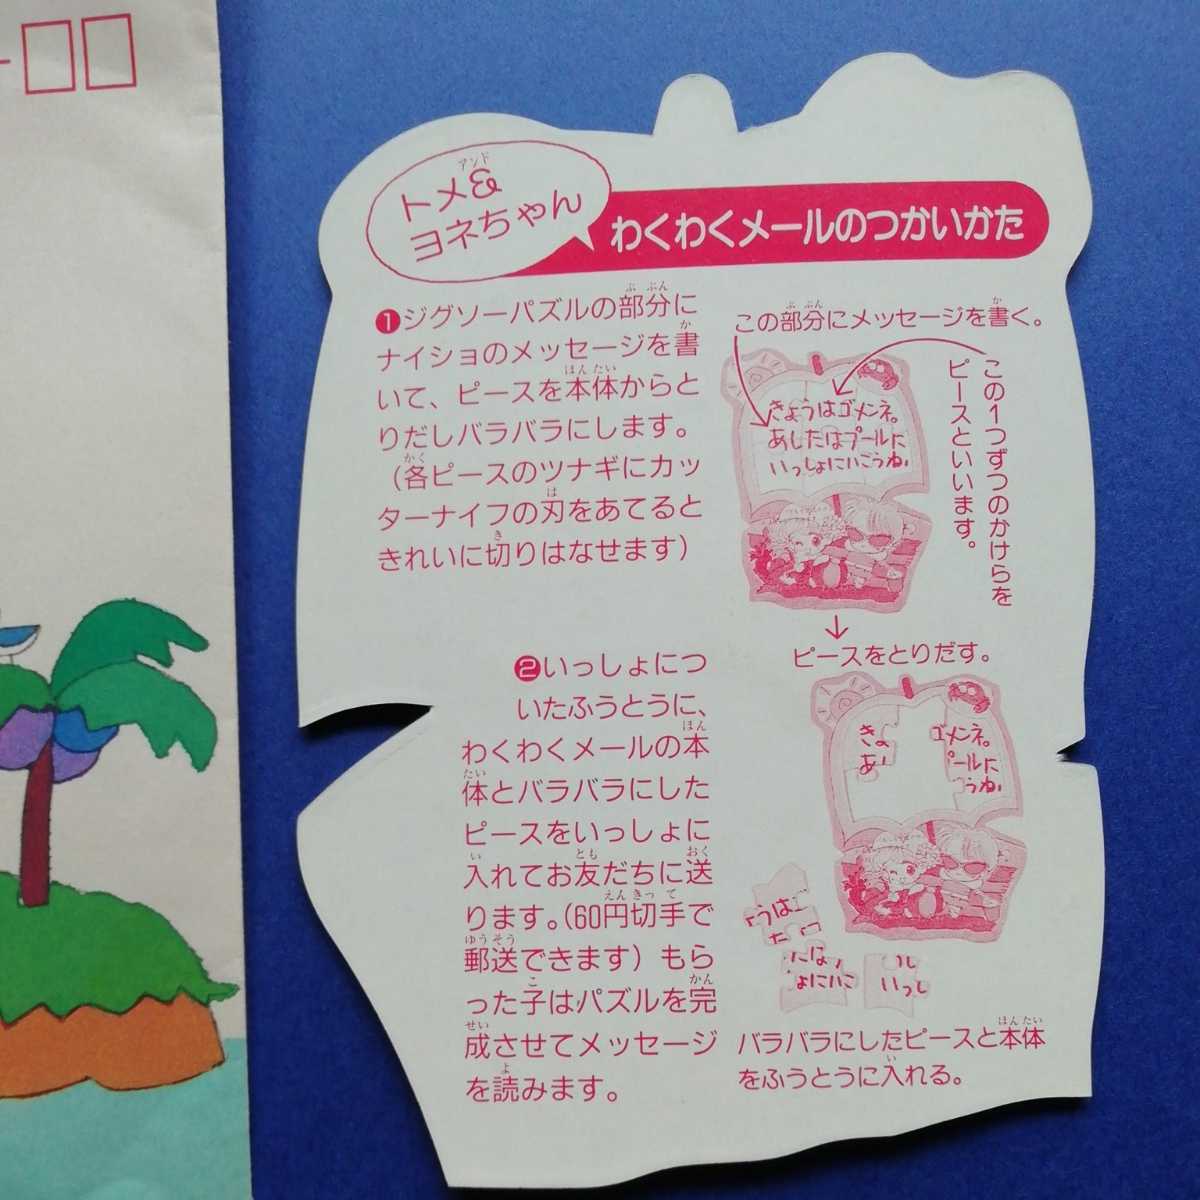 トメ&
アンド
ヨネちゃん
わくわくメールのつかいかた
❶ジグソーパズルの部分に
ナイショのメッセージを書
いて、ピースを本体からと
りだしバラバラにします。
(各ピースのツナギにカッ
ターナイフの刃をあてると
きれいに切りはなせます)
この部分にメッセージを書く。
この1つずつのかけらを
ピースといいます。
きょうはゴメンネ。
あしたはプールに
いっしょにいこうね。
ピースをとりだす。
❷いっしょにつ
いたふうとうに、
わくわくメールの本
体とバラバラにした
ピースをいっしょに
入れてお友だちに送
ります。(60円切手で
郵送できます)もら
った子はパズルを完
成させてメッセージ
を読みます。
きょ
ゴメンネ。
あ
プールに
うね。
うは
た
たは
ょにいこ
いっし
バラバラにしたピースと本体
をふうとうに入れる。